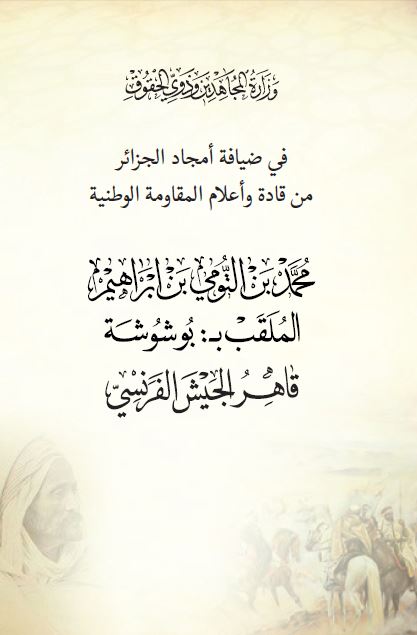 وَزَارَةُ المُجَاهِدِينَ وَذَوِي الحُقُوقِ
في ضيافة أمجاد الجزائر
من قادة وأعلام المقاومة الوطنية
مُحَمَّد بَن التُّومِي بَن ابَراهِيْم
المُلَقَبْ بـ: بُوشُوشَة
قَاهِرُ الجَيْشَ الفَرَنْسِيّ